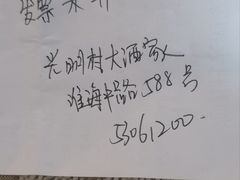 光明村大酒家
淮海中路588号
53061200.